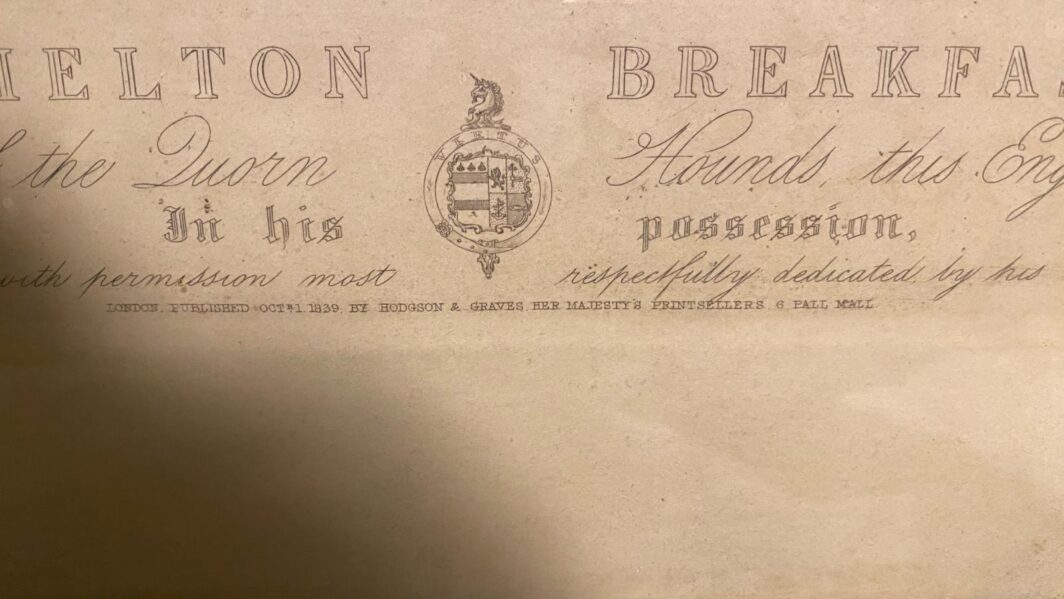 MELTON BREAKFAS
VERTUS
the Quorn Hounds, this Eng
In his possession,
with permission most respectfully dedicated, by his
LONDON, PUBLISHED OCTR 1. 1839, BY HODGSON & GRAVES, HER MAJESTY'S PRINTSELLERS 6, PALL MALL